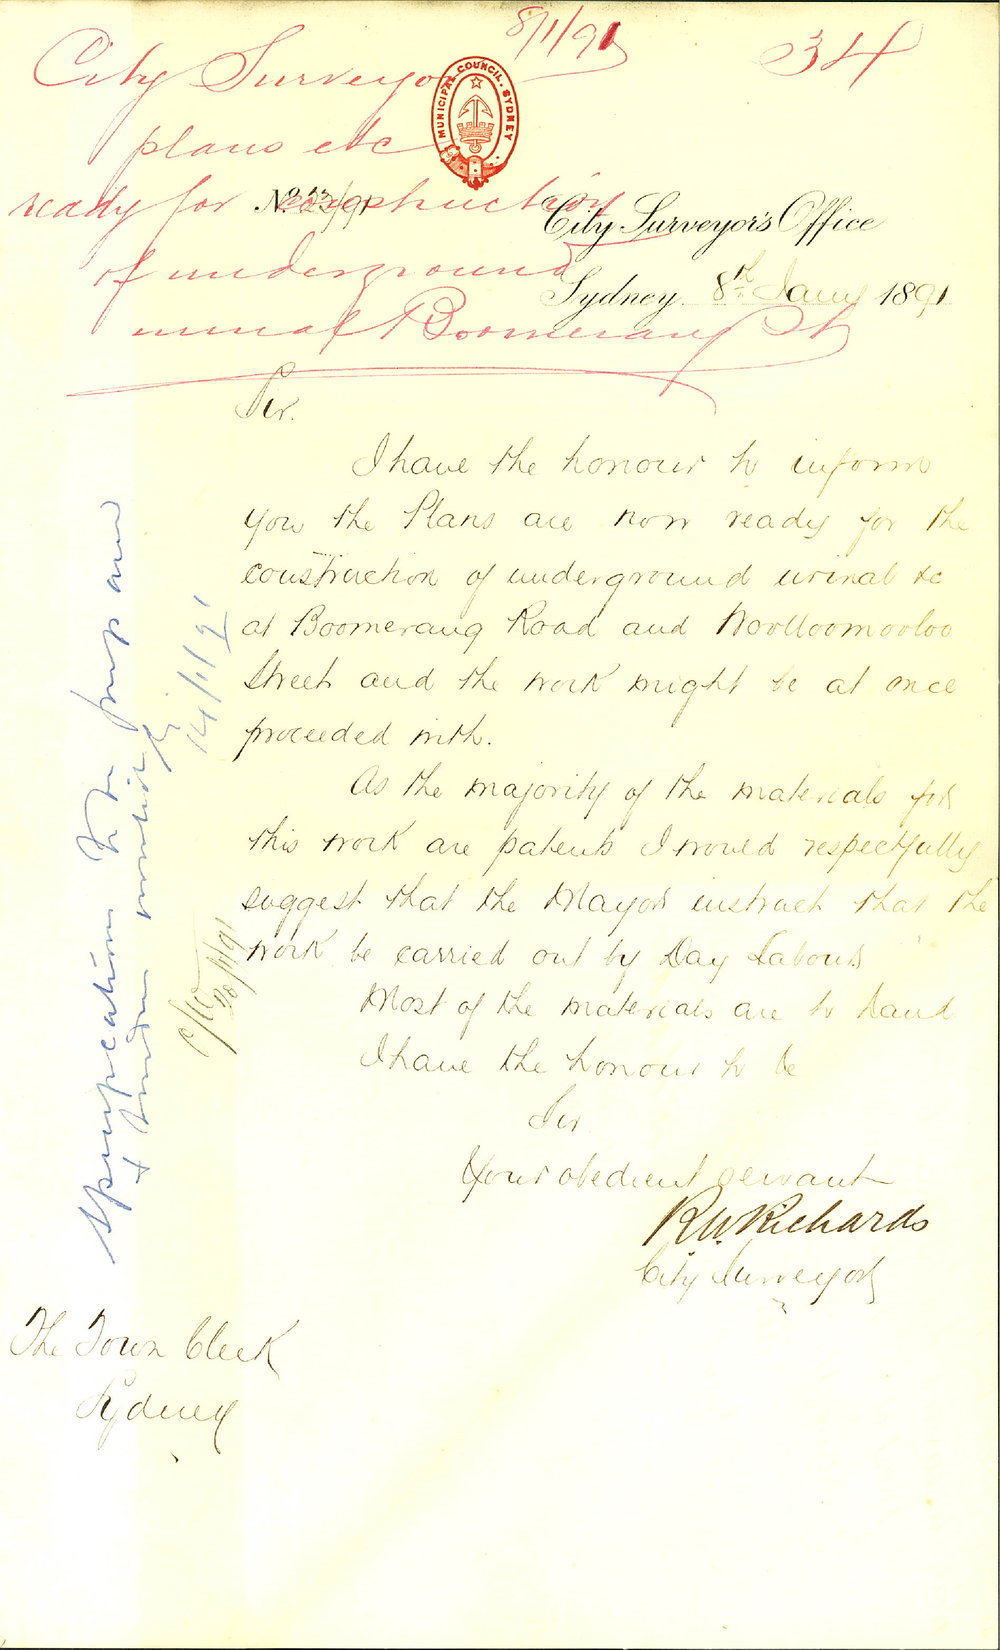 8/1/91
34
City Surveyor
plans etc
ready for construction
of underground
urinal Boomerang St
MUNICIPAL COUNCIL. SYDNEY
No. 23/91
City Surveyor's Office
Sydney 8th Jany 1891
Sir.
I have the honour to inform
you the Plans are now ready for the
construction of underground urinal &c
at Boomerang Road and Woolloomooloo
Street and the work might be at once
proceeded with.
As the majority of the materials for
this work are patents I would respectfully
suggest that the Mayor instruct that the
work be carried out by Day Labour
Most of the materials are to hand
I have the honour to be
Sir
Your obedient servant
R W. Richards
City Surveyor
The Town Clerk
Sydney
Specification to be prepared
& tenders invited
14/1/91
20/1/91